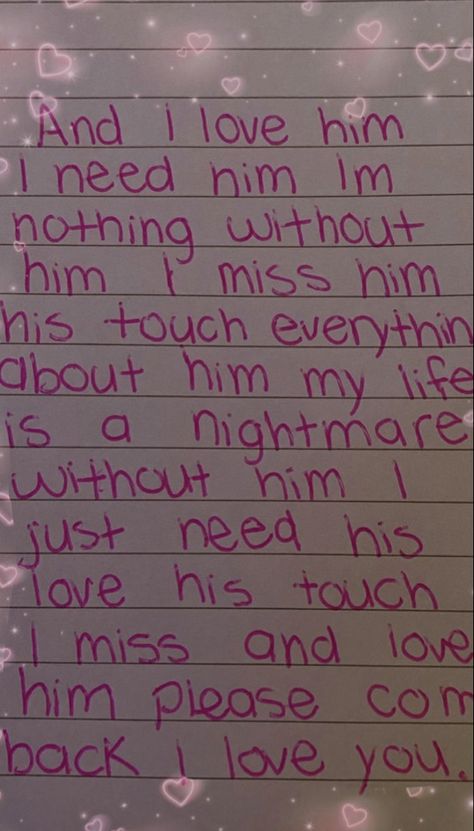 And i love him
I need him Im
nothing without
him I miss him
his touch everythin
about him my life
is a nightmare
without him I
just need his
love his touch
I miss and love
him please com
back i love you.